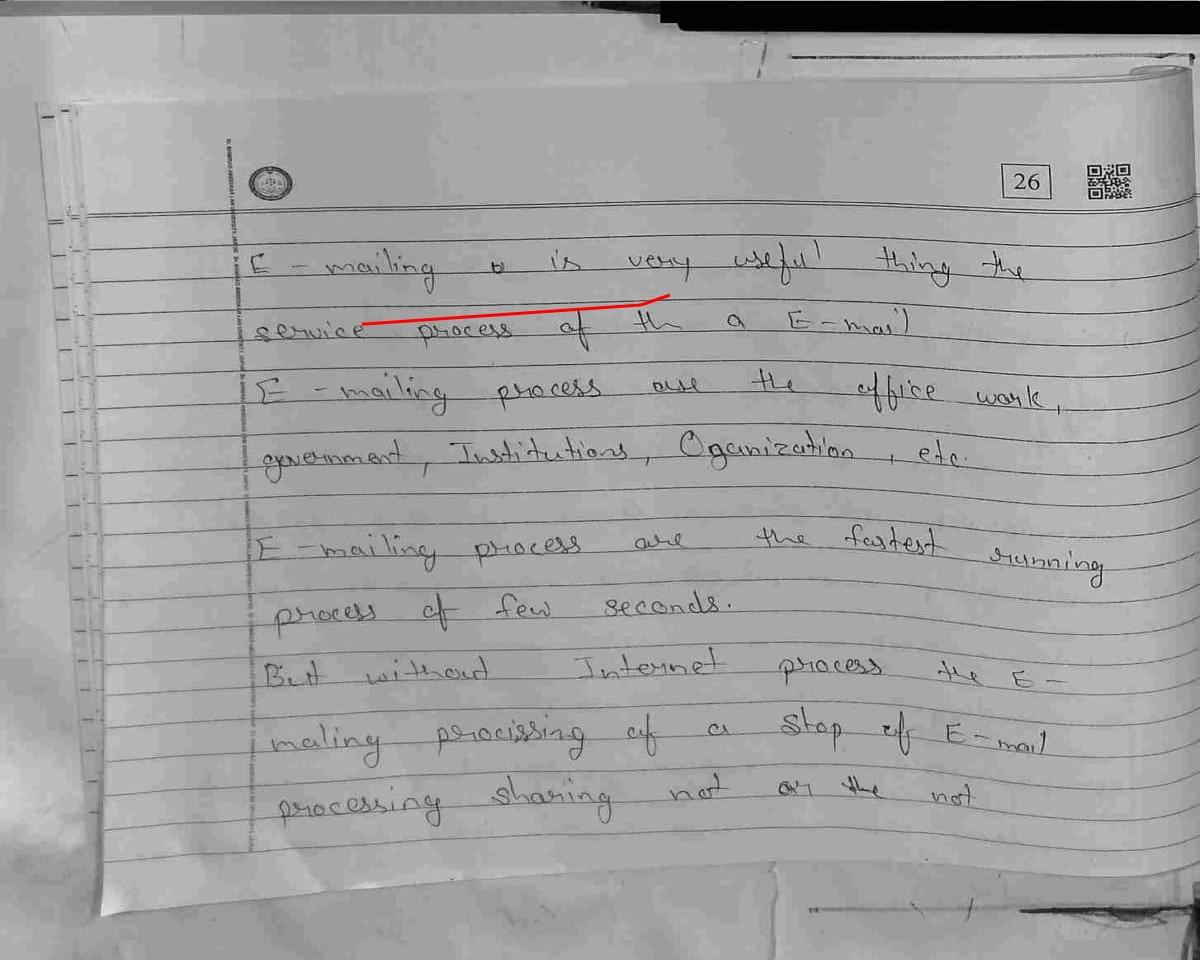 26
E - mailing is very useful thing the
service process of th a E-mail
E - mailing process are the office work,
government, Institutions, Oganization, etc.
E-mailing process are the fastest running
process of few seconds.
But without Internet process the E-
maling processing of a stop of E-mail
processing sharing not or the not